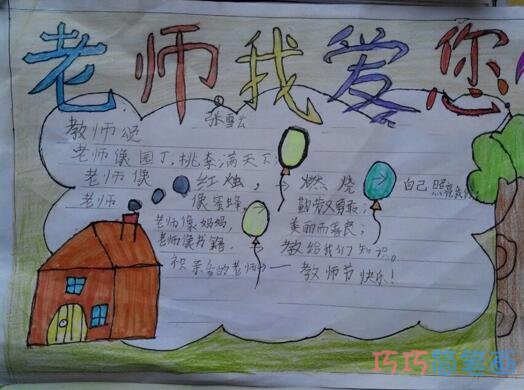 老师我爱您
张雪云
教师颂
老师像园丁,桃李满天下;
老师像 红烛, 燃烧 自己照亮我们
老师 像蜜蜂, 勤劳又勇敢;
老师像妈妈, 美丽而善良;
老师像书籍, 教给我们知识。
祝亲爱的老师 — 教师节快乐!
巧巧简笔画